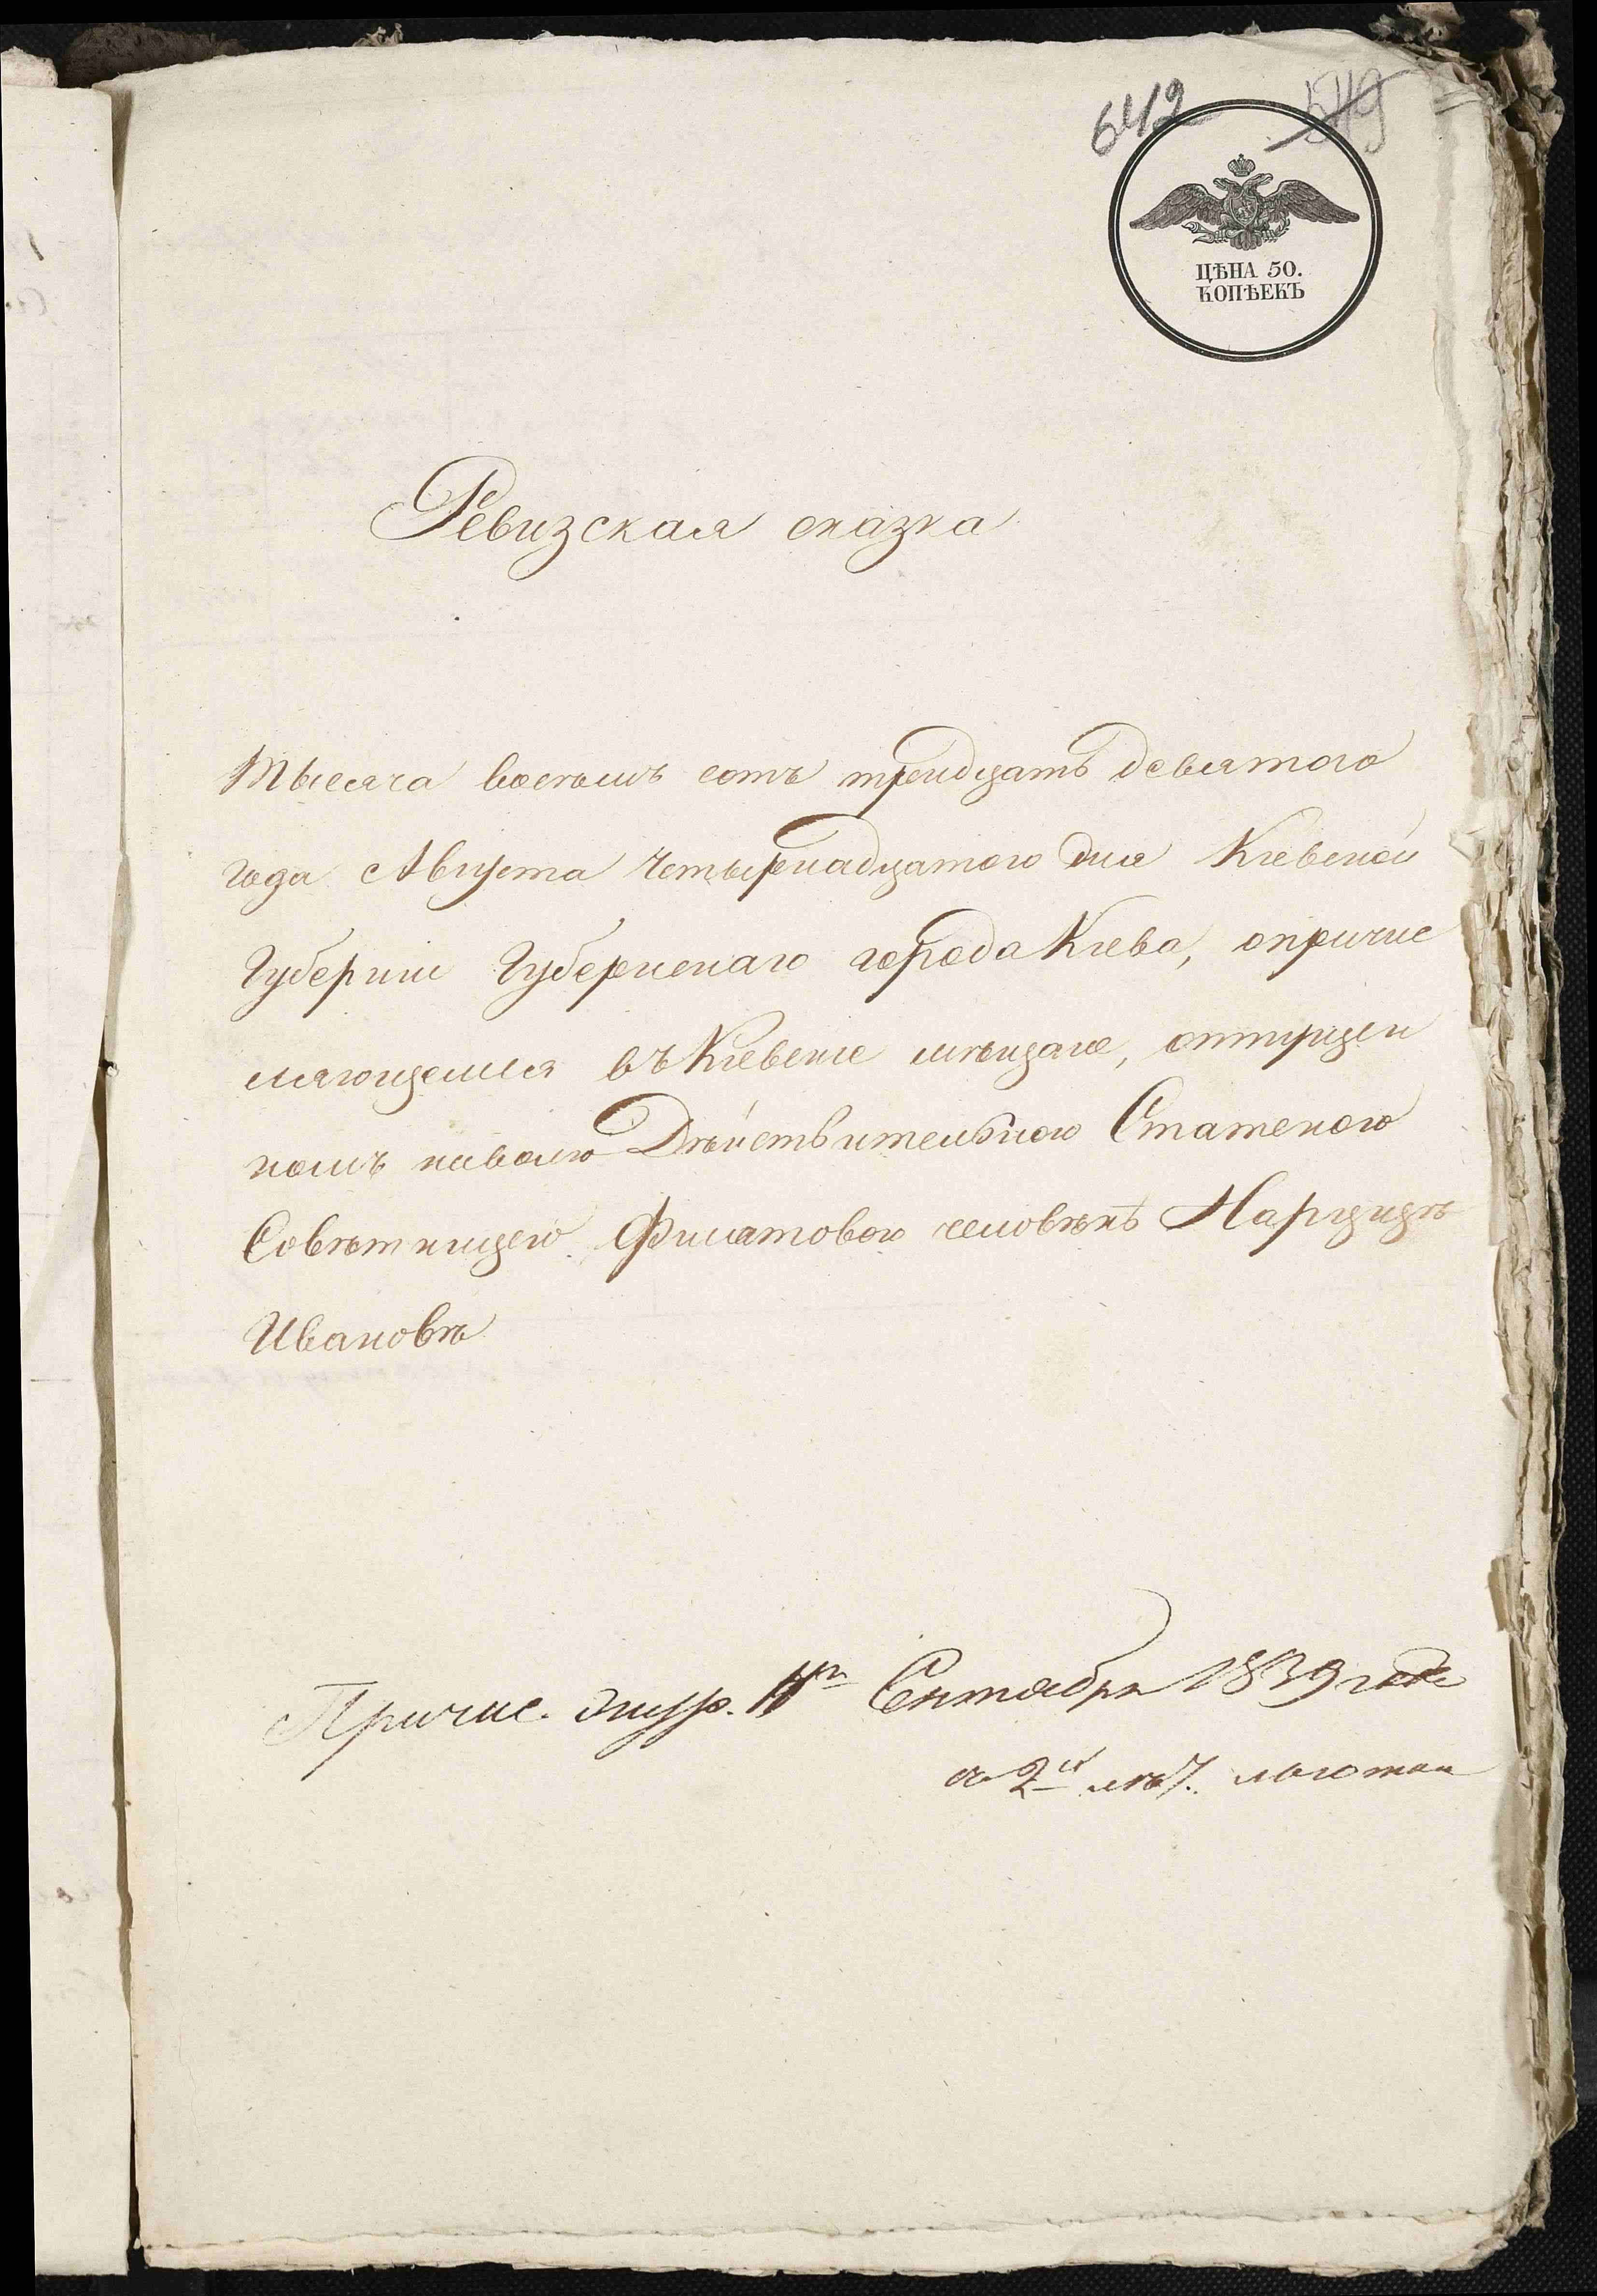 642 549
ЦѢНА 50.
КОПѢЕКЪ
Ревизская сказка
Тысяча восемъ сотъ тридцать девятого
года Августа четырнадцатого дня Кіевской
Губерніи Губернскаго города Кіева, о причис
ляющемся въ Кіевскіе мѣщане, отпущен
номъ на волю Дѣйствительною Статскою
Совѣтницею Филатовою человѣкѣ Нарцызѣ
Ивановѣ
Причис. Сентября 1839 года
съ 2й льготы